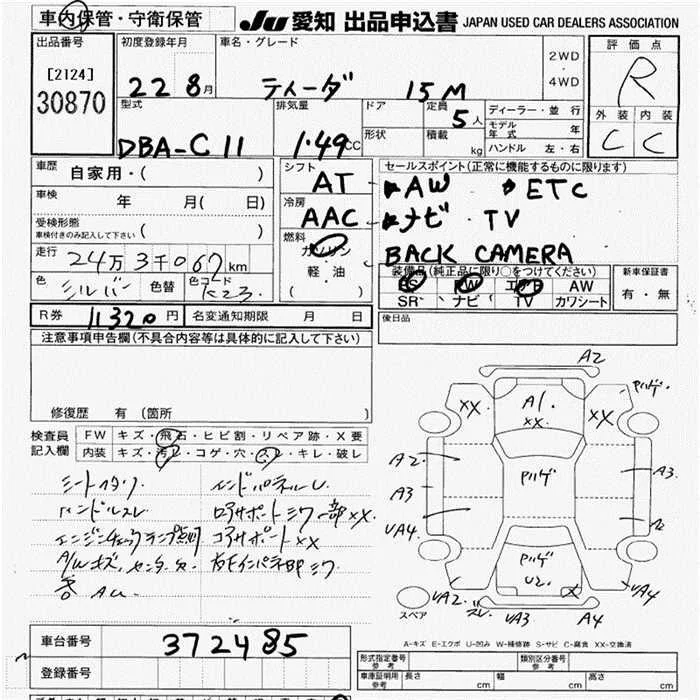 車内保管・守衛保管
JU 愛知 出品申込書 JAPAN USED CAR DEALERS ASSOCIATION
出品番号
[2124]
30870
初度登録年月
22 8月
車名・グレード
ティーダ 15M
2WD
・
4WD
評価点
R
外装 内装
C C
型式
DBA-C11
排気量
1.49CC
ドア
形状
定員
5人
積載
kg
ディーラー・並行
モデル年式 年
ハンドル 左・右
車歴
自家用・( )
車検
年 月( 日)
受検形態
車検付きのみ記入して下さい
( )
走行
24万3千067km
色
シルバー
色替
色コード
K23
シフト
AT
冷房
AAC
燃料
ガソリン
軽・油
( )
セールスポイント(正常に機能するものに限ります)
AW ETC
ナビ TV
BACK CAMERA
装備品(純正品に限り〇をつけてください)
PS PW エアB AW
SR ナビ TV カワシート
新車保証書
有・無
後日品
R券 11320円
名変通知期限 月 日
注意事項申告欄(不具合内容等は具体的に記入して下さい)
修復歴 有 (箇所 )
検査員
記入欄
FW キズ・飛石・ヒビ割・リペア跡・X要
内装 キズ・汚レ・コゲ・穴・スレ・キレ・破レ
シートスタリ
ハンドルスレ
エンジンチェックランプ点灯
コアサポート XX
A2
XX
A1
XX
XX
ハゲ
A2
A3
UA4
ハゲ
A3
ハゲ
U2
X
UA2
ズレ
UA3
A4
UA4
スペア
A-キズ E-エクボ U-凹み W-補修跡 S-サビ C-腐食 XX-交換済
車台番号
372485
登録番号
形式指定番号
参考
類別区分番号
参考
車庫証明用
参考
長さ cm
幅 cm
高さ cm